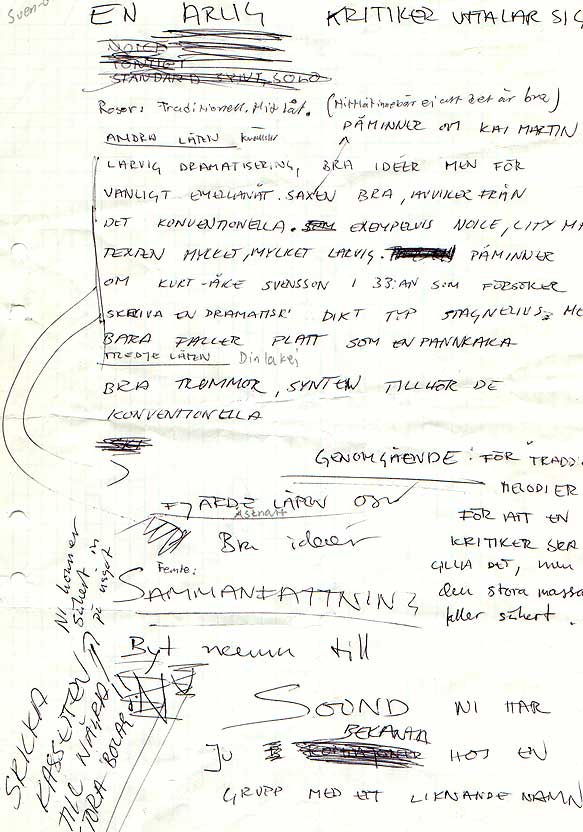 EN ÄRLIG KRITIKER UTTALAR SIG
STANDARD SYNT, SOLO
Traditionell. Hitlåt. (Hitlåt innebär ej att det är bra)
ANDRA LÅTEN PÅMINNER OM KAI MARTIN
LARVIG DRAMATISERING, BRA IDÉER MEN FÖR
VANLIGT EMELLANÅT. SAXEN BRA, AVVIKER FRÅN
DET KONVENTIONELLA. EXEMPELVIS NOICE, CITY
TEXTEN MYCKET, MYCKET LARVIG. PÅMINNER
OM KURT-ÅKE SVENSSON I 33:AN SOM FÖRSÖKER
SKRIVA EN DRAMATISK DIKT TYP STAGNELIUS.
BARA FALLER PLATT SOM EN PANNKAKA
TREDJE LÅTEN Din lakej
BRA TRUMMOR, SYNTEN TILLHÖR DE
KONVENTIONELLA
GENOMGÅENDE: FÖR TRADI
MELODIER
FÖR ATT EN
KRITIKER SKA
GILLA DET, men
den stora massa
FJÄRDE LÅTEN
Bra idéer
Femte:
SAMMANFATTNING
Byt namn till
SOUND NI HAR
JU BEKANTA HOS EN
GRUPP MED ETT LIKNANDE NAMN
Ni kommer
säkert in
på något
SKICKA
KASSETTEN
TILL NÅGRA
STORA BOLAG